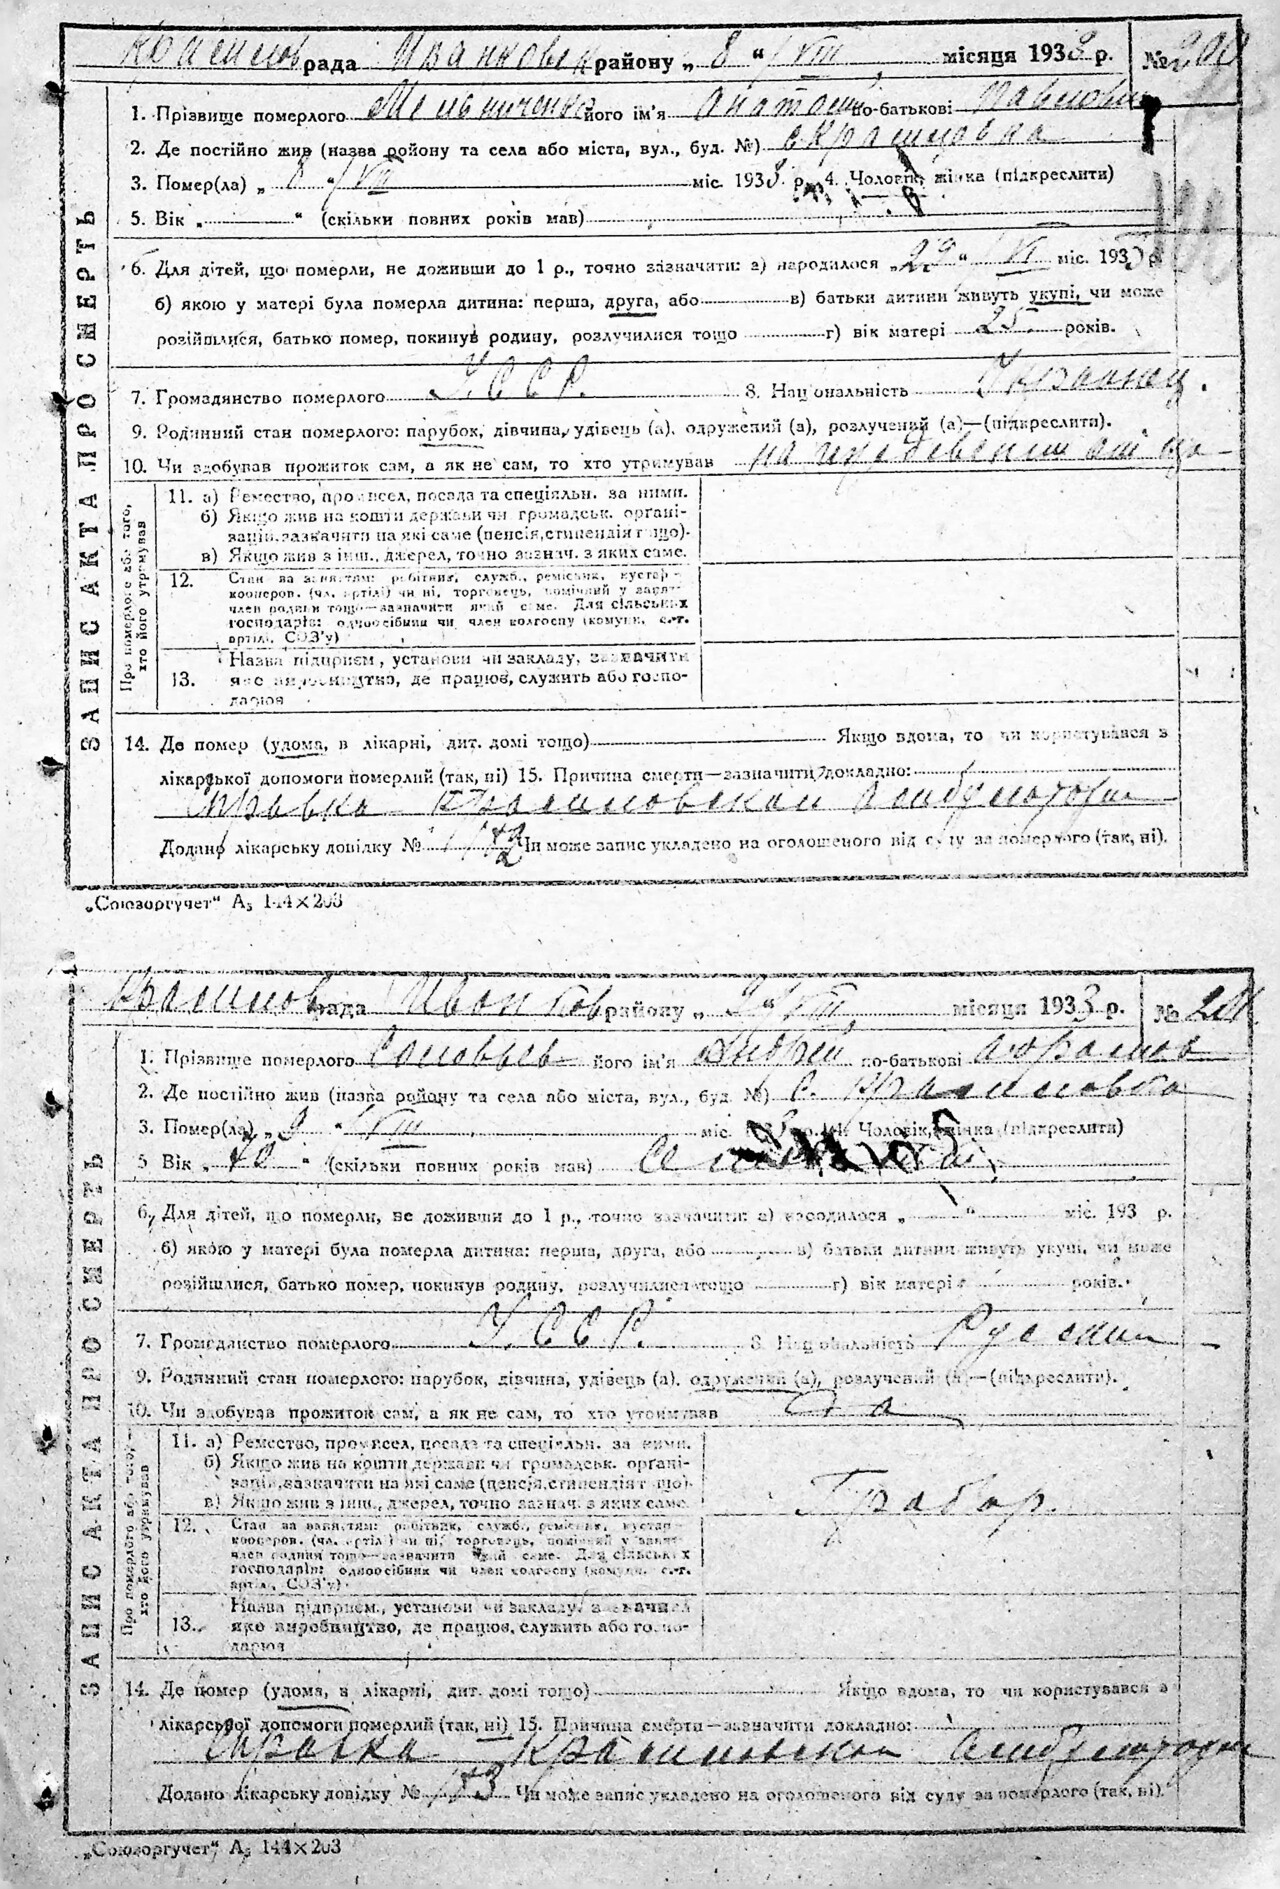 рада Иванков району „ 8 “ VIII місяця 1933 р. № 200
1. Прізвище померлого Мельниченко його ім'я Анатолий по-батькові Павлович
2. Де постійно жив (назва ройону та села або міста, вул., буд. №)
3. Помер(ла) „ 8 “ VIII міс. 1933 р. 4. Чоловік, жінка (підкреслити)
5. Вік „ “ (скільки повних років мав)
6. Для дітей, що померли, не доживши до 1 р., точно зазначити: а) народилося „ 29 “ VI міс. 193 р.
б) якою у матері була померла дитина: перша, друга, або в) батьки дитини живуть укупі, чи може
розійшлися, батько помер, покинув родину, розлучилися тощо г) вік матері 25 років.
7. Громадянство померлого У.С.С.Р. 8. Національність Украинец.
9. Родинний стан померлого: парубок, дівчина, удівець (а), одружений (а), розлучений (а)—(підкреслити).
10. Чи здобував прожиток сам, а як не сам, то хто утримував на иждевении отца
ЗАПИС АКТА ПРО СМЕРТЬ
Про померлого або того,
хто його утримував
11. а) Ремество, промисел, посада та спеціяльн. за ними.
б) Якщо жив на кошти держави чи громадськ. орґані-
зацій, зазначити на які саме (пенсія, стипендія тощо).
в) Якщо жив з інш. джерел, точно зазнач. з яких саме.
12. Стан за заняттям: робітник, служб., ремісник, кустар -
кооперов. (чл. артілі) чи ні, торговець, помічний у занят.
член родини тощо—зазначити який саме. Для сільських
господарів: одноосібник чи член колгоспу (комуни, с.-г.
артілі, СОЗ'у)
13. Назва підприєм., установи чи закладу, зазначити
яке виробництво, де працює, служить або госпо-
дарює
14. Де помер (удома, в лікарні, дит. домі тощо) Якщо вдома, то чи користувався з
лікарської допомоги померлий (так, ні) 15. Причина смерти—зазначити докладно:
Справка Красиловской Амбулатории
Додано лікарську довідку № Чи може запис укладено на оголошеного від суду за померлого (так, ні).
„Союзоргучет“ А₅ 144×203
рада Иванков району „ 9 “ VIII місяця 1933 р. № 201.
1. Прізвище померлого Соловьев його ім'я Андрей по-батькові
2. Де постійно жив (назва ройону та села або міста, вул., буд. №) с. Красиловка
3. Помер(ла) „ 9 “ VIII міс. р. 4. Чоловік, жінка (підкреслити)
5 Вік „ 70 “ (скільки повних років мав)
6. Для дітей, що померли, не доживши до 1 р., точно зазначити: а) народилося „ “ міс. 193 р.
б) якою у матері була померла дитина: перша, друга, або в) батьки дитини живуть укупі, чи може
розійшлися, батько помер, покинув родину, розлучилися тощо г) вік матері років.
7. Громадянство померлого У.С.С.Р. 8. Національність Русский
9. Родинний стан померлого: парубок, дівчина, удівець (а), одружений (а), розлучений (а)—(підкреслити).
10. Чи здобував прожиток сам, а як не сам, то хто утримував
ЗАПИС АКТА ПРО СМЕРТЬ
Про померлого або того,
хто його утримував
11. а) Ремество, промисел, посада та спеціяльн. за ними.
б) Якщо жив на кошти держави чи громадськ. орґані-
зацій, зазначити на які саме (пенсія, стипендія тощо).
в) Якщо жив з інш. джерел, точно зазнач. з яких саме.
Грабар.
12. Стан за заняттям: робітник, служб., ремісник, кустар -
кооперов. (чл. артілі) чи ні, торговець, помічний у занят.
член родини тощо—зазначити який саме. Для сільських
господарів: одноосібник чи член колгоспу (комуни, с.-г.
артілі, СОЗ'у)
13. Назва підприєм., установи чи закладу, зазначити
яке виробництво, де працює, служить або госпо-
дарює
14. Де помер (удома, в лікарні, дит. домі тощо) Якщо вдома, то чи користувався з
лікарської допомоги померлий (так, ні) 15. Причина смерти—зазначити докладно:
Справка Красиловской Амбулатории
Додано лікарську довідку № 153 Чи може запис укладено на оголошеного від суду за померлого (так, ні).
„Союзоргучет“ А₅ 144×203